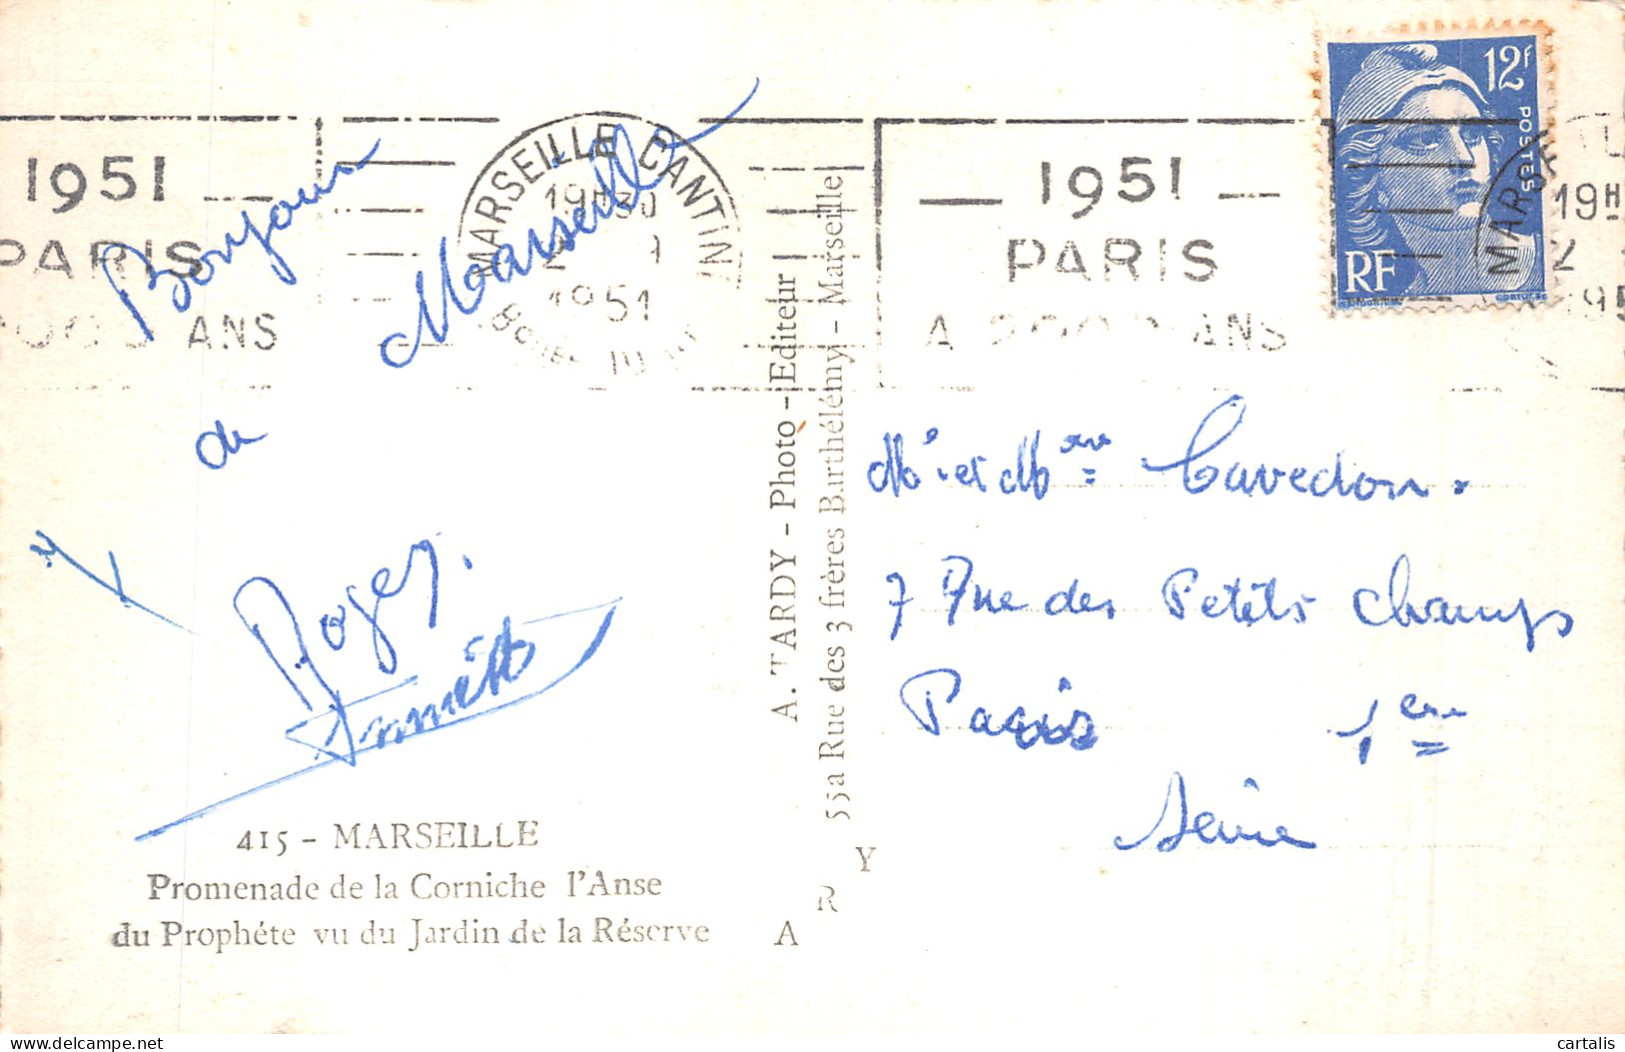 1951
PARIS
ANS
MARSEILLE CANTINI
19H30
1951
1951
PARIS
A 2000 ANS
12f
POSTES
RF
19H
Bonjour
de
Marseille
Roger.
Annette
415 - MARSEILLE
Promenade de la Corniche l'Anse
du Prophéte vu du Jardin de la Réserve
A. TARDY - Photo - Editeur
55a Rue des 3 frères Barthélémy - Marseille
A R Y
Mr et Mme Cavedon.
7 Rue des Petits Champs
Paris 1er
Seine
cartalis